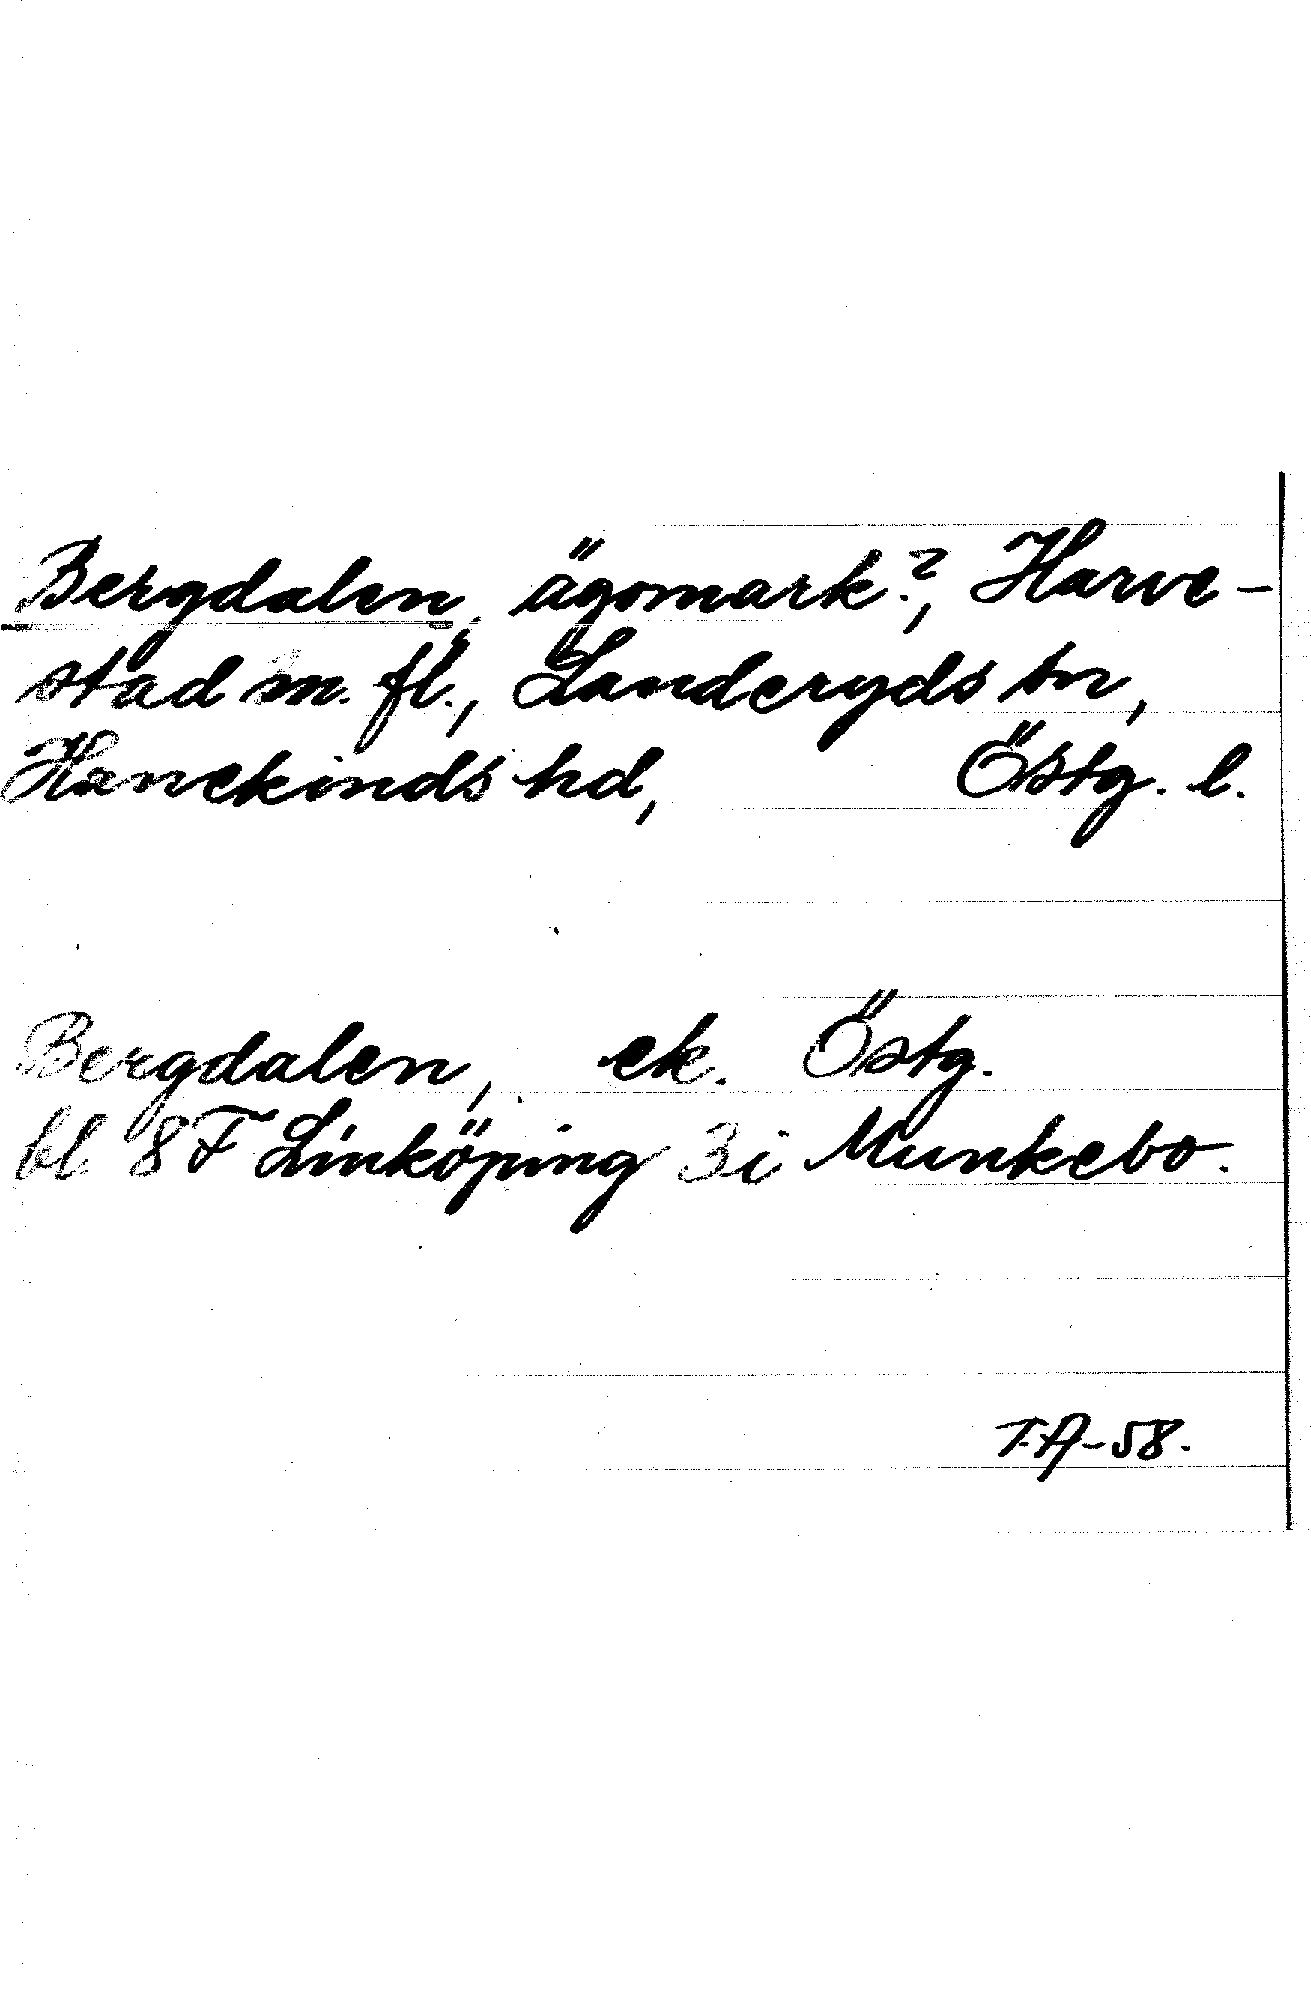 Bergdalen, ägomark?, Harve-
stad m. fl., Landeryds sn,
Hanekinds hd, Östg. l.
Bergdalen, ek. Östg.
bl 8F Linköping 3i Munkebo.
T.A-58.